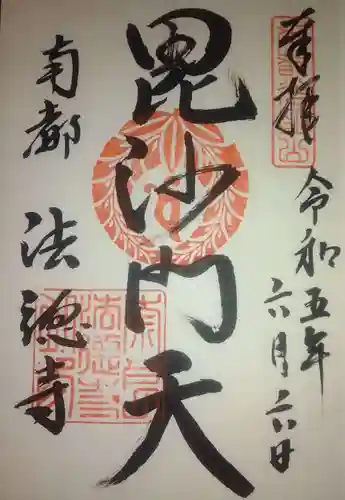 奉拝
令和五年
六月六日
毘沙門天
南都
法徳寺